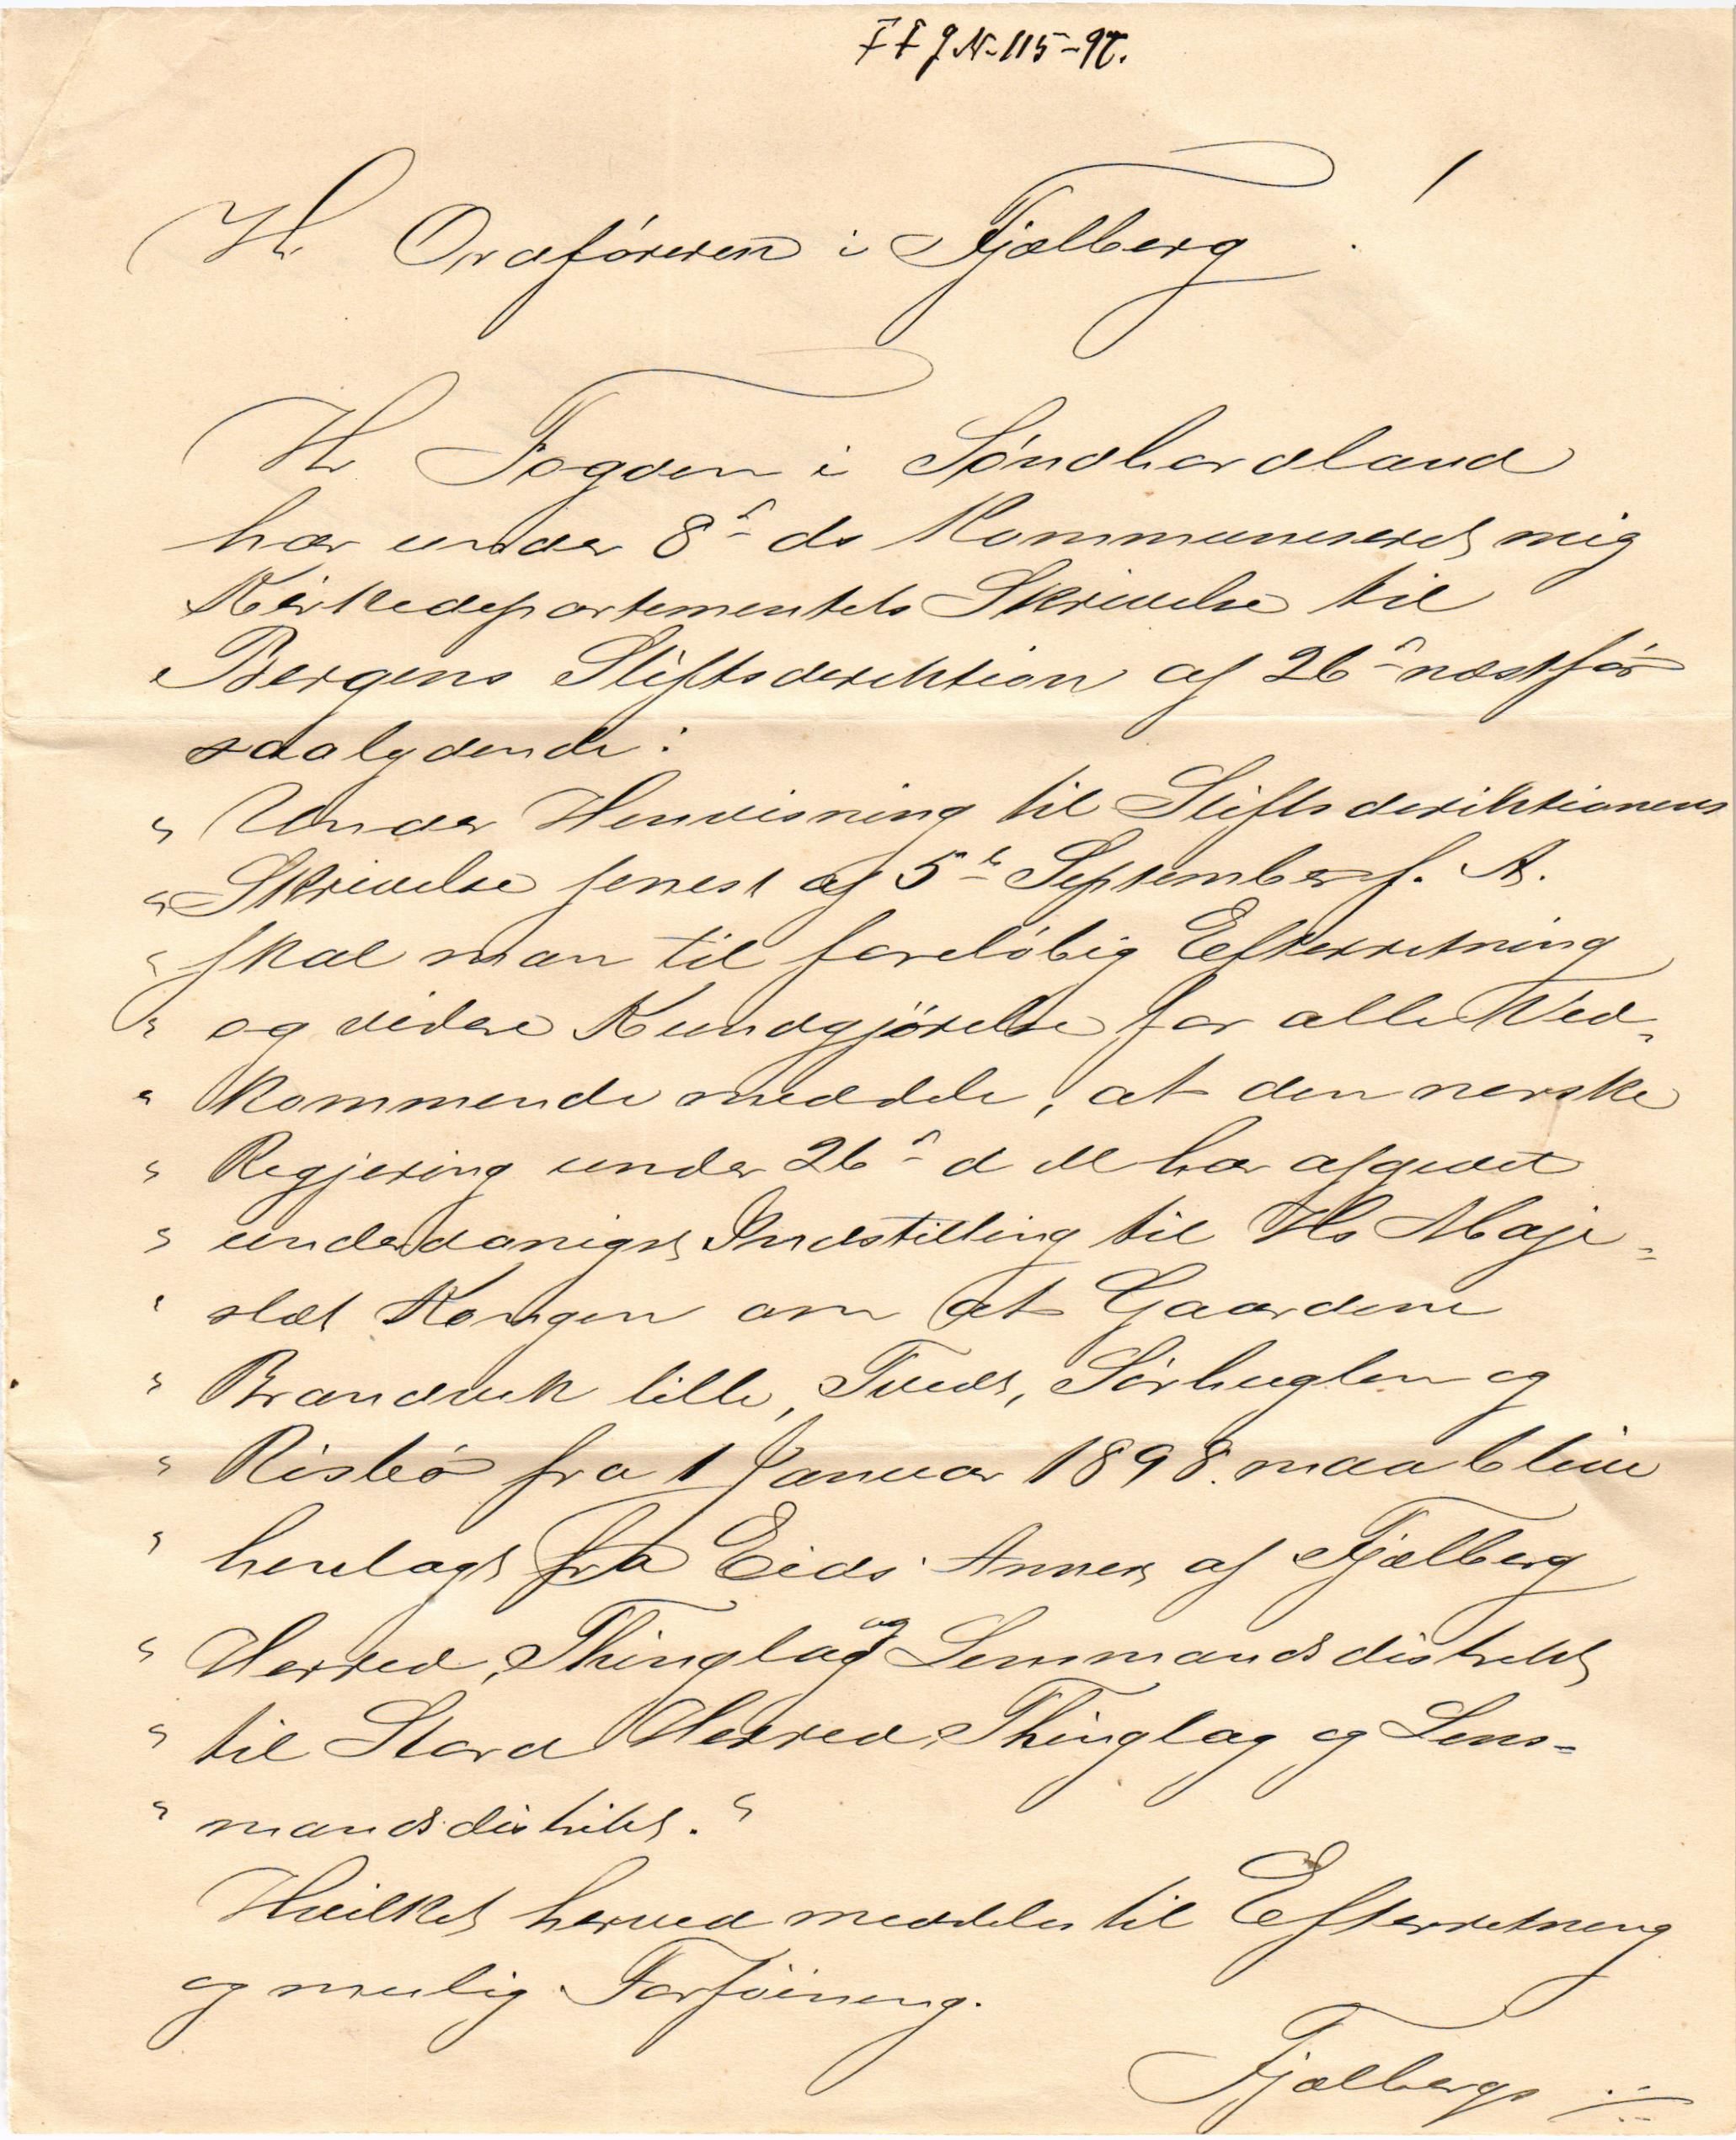 F F J N. 115-97.
Hr Ordföreren i Fjælberg !
Hr Fogden i Söndhordland
har under 8de ds Kommuniseret mig
Kirkedepartementets Skrivelse til
Bergens Stiftsdirektion af 26de næstför
saalydende:
"Under Henvisning til Stiftsdirektionens
"Skrivelse senest af 5te September f. A.
"skal man til foreløbig Efterretning
"og videre Kundgjörelse for alle Ved-
"kommende meddele, at den norske
"Regjering under 26de d M har afgivet
"underdanigst Indstilling til Hs Maje-
"stæt Kongen om at Gaardene
"Brandvik lille, Tvedt, Sörhuglen og
"Risbö fra 1 Januar 1898. maa blive
"henlagt fra Eids Annex af Fjælberg
"Herred, Thinglag og Lensmandsdistrikt
"til Stord Herred, Thinglag og Lens-
"mandsdistrikt."
Hvilket herved meddeles til Efterretning
og mulig Forföining.
Fjælbergs